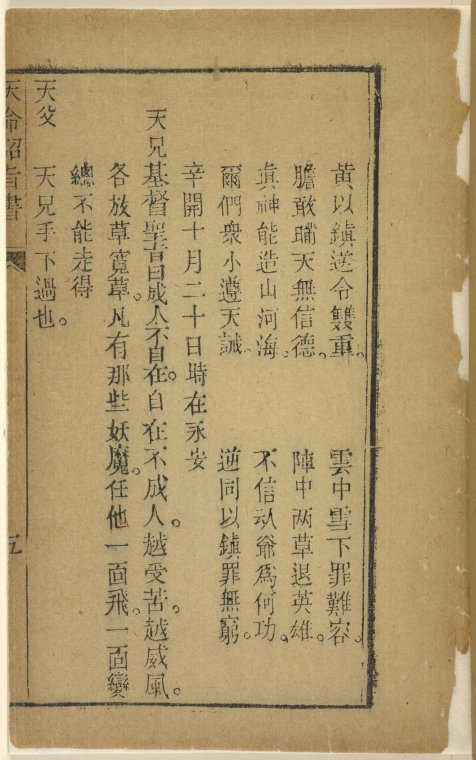 黃以鎮逆令雙重。 雲中雪下罪難容。
膽敢瞞天無信德。 陣中两草退英雄。
眞神能造山河海。 不信认爺爲何功。
爾們衆小遵天誡。 逆同以鎮罪無窮。
辛開十月二十日時在永安
天兄基督聖旨曰成人不自在。自在不成人。越受苦。越威風。
各放草寬草。凡有那些妖魔。任他一面飛。一面變
總不能走得
天父 天兄手下過也。
天命詔旨書 五